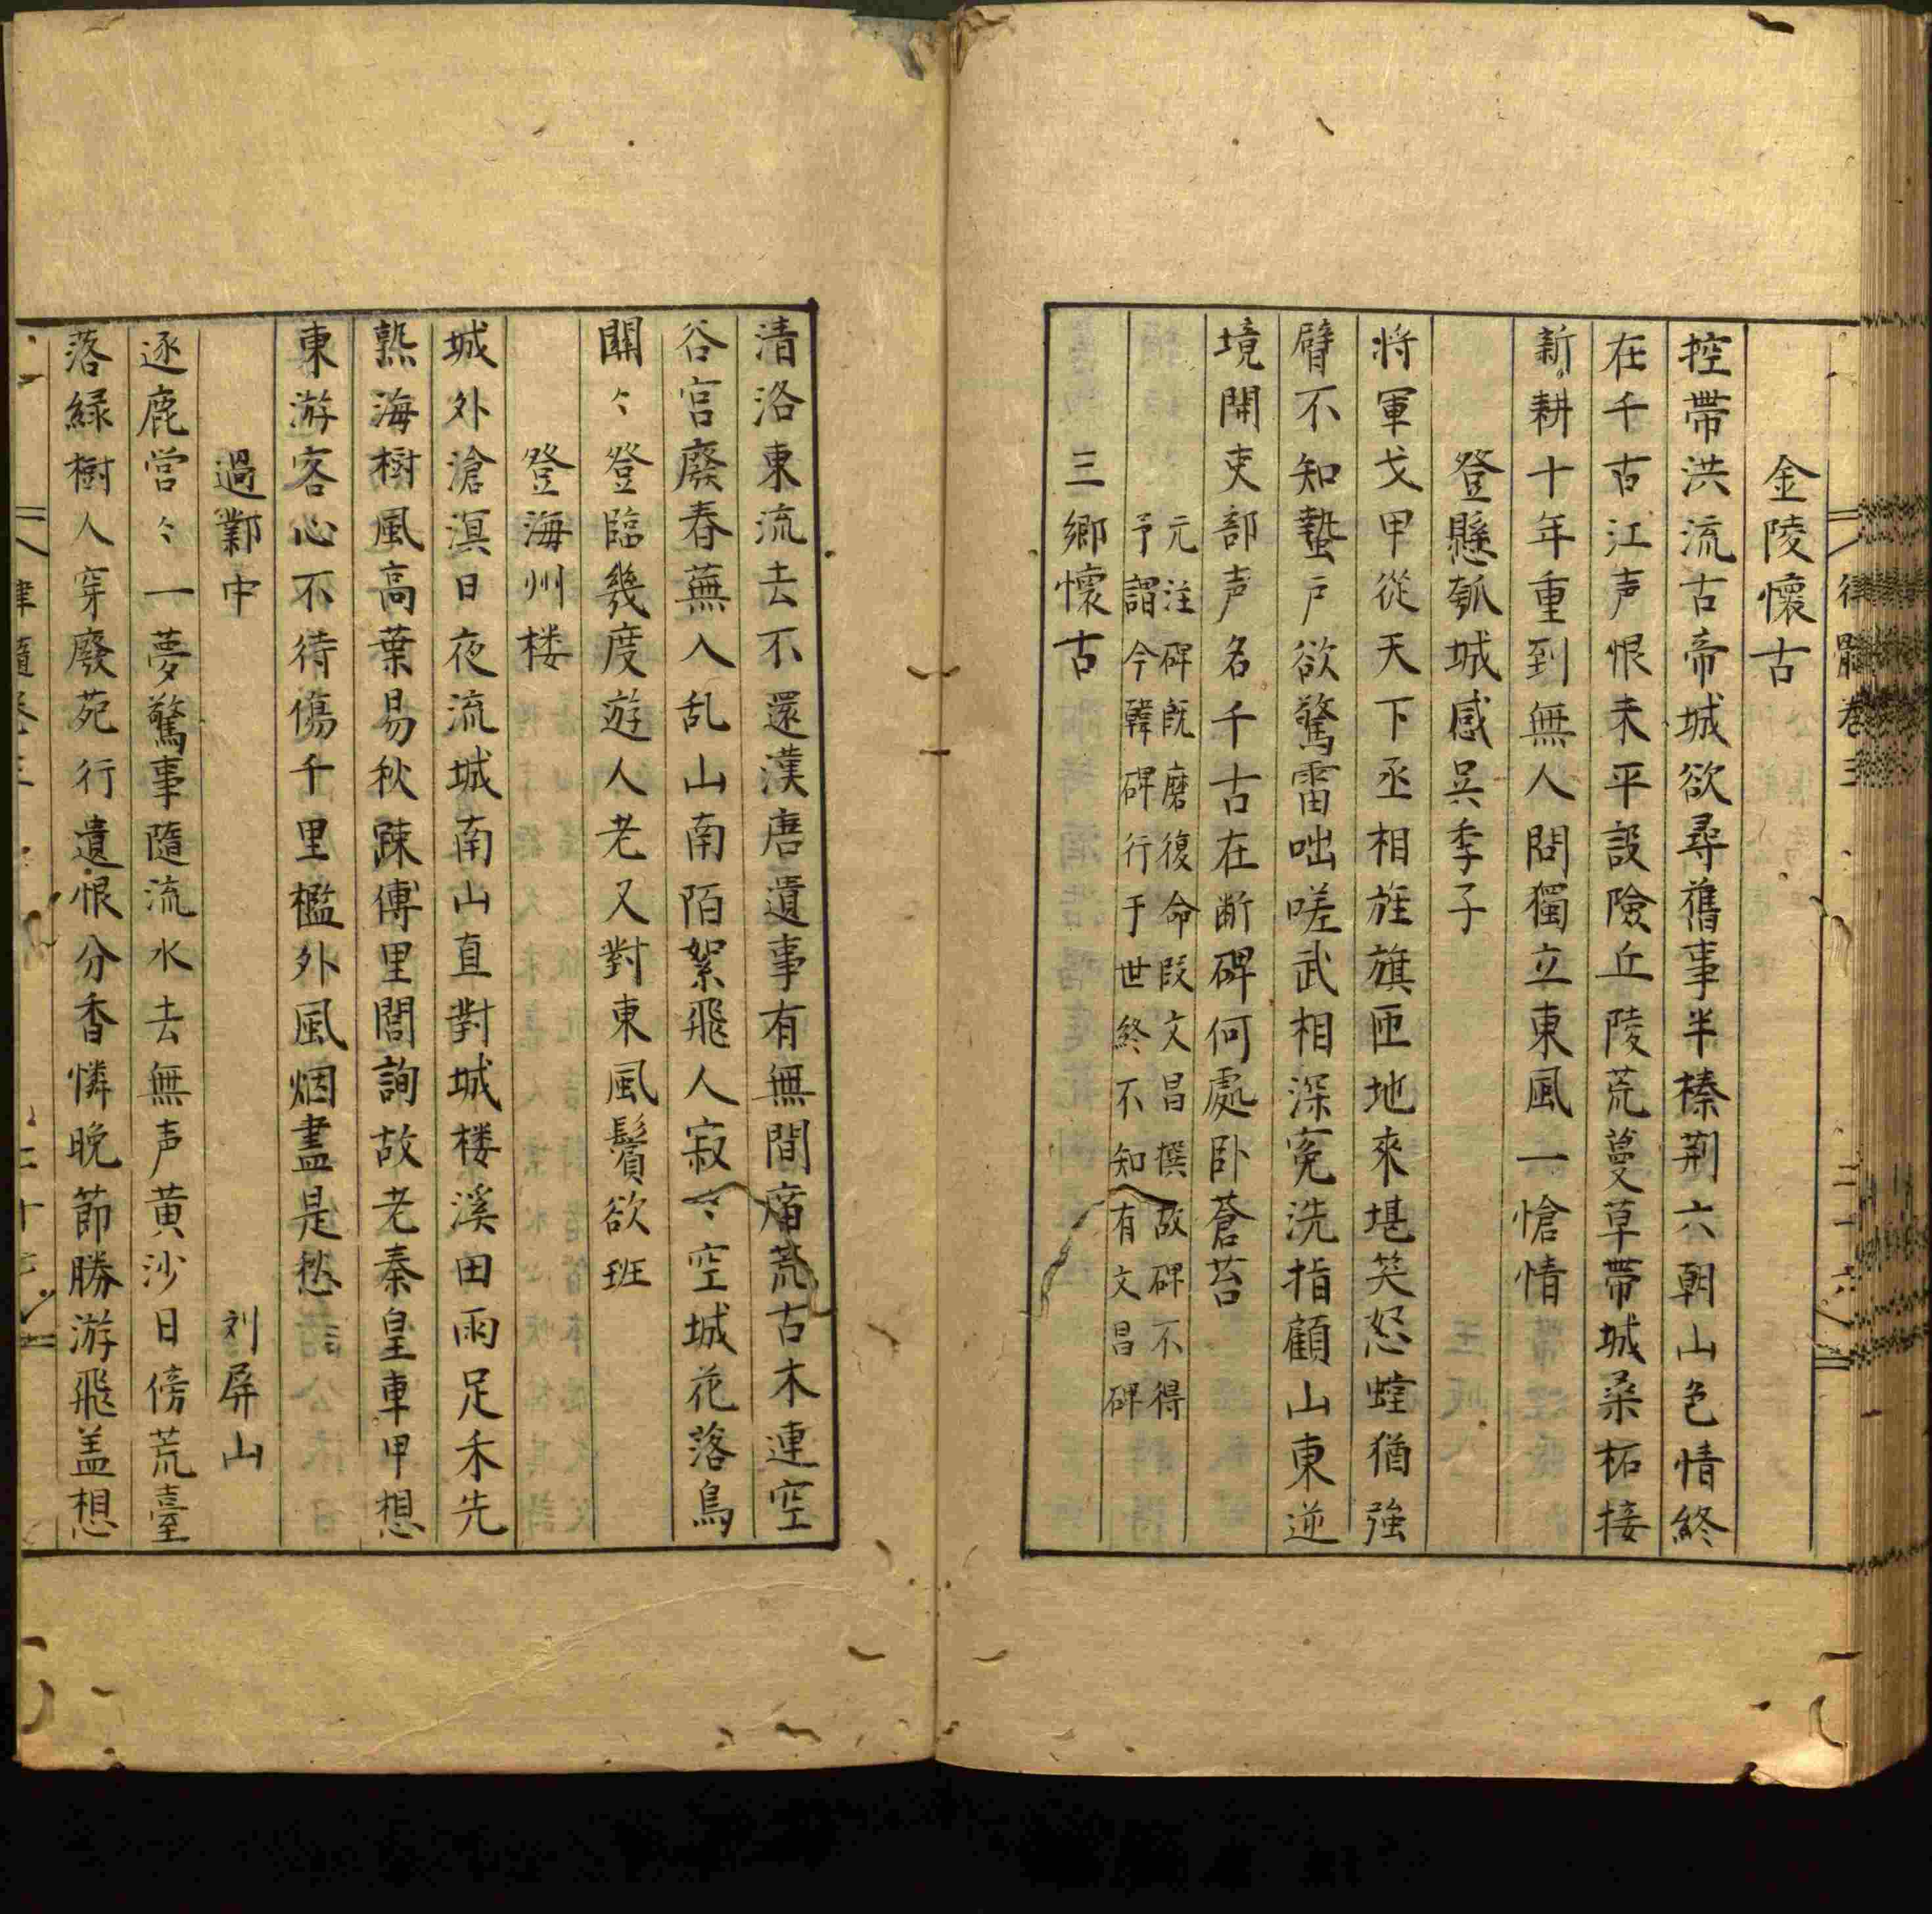 律髓卷三
二十六
金陵懷古
控帶洪流古帝城欲尋舊事半榛荆六朝山色情終
在千古江声恨未平設險丘陵荒蔓草帶城桑柘接
新耕十年重到無人問獨立東風一愴情
登懸瓠城感吳季子
將軍戈甲從天下丞相旌旗匝地來堪笑怒螳猶強
臂不知蟄戸欲驚雷咄嗟武相深寃洗指顧山東逆
境開吏部声名千古在断碑何處卧蒼苔
元注碑既磨復命段文昌撰故碑不得
予謂今韓碑行于世終不知有文昌碑
三鄉懷古
清洛東流去不還漢唐遺事有無間庿荒古木連空
谷宫廢春蕪入乱山南陌絮飛人寂〻空城花落鳥
關〻登臨幾度遊人老又對東風鬢欲班
登海州楼
城外滄溟日夜流城南山直對城楼溪田雨足禾先
熟海樹風高葉易秋踈傅里閭詢故老秦皇車甲想
東游客心不待傷千里檻外風烟盡是愁
過鄴中 刘屏山
逐鹿営〻一夢驚事隨流水去無声黄沙日傍荒臺
落緑樹人穿廢苑行遺恨分香憐晚節勝游飛盖想